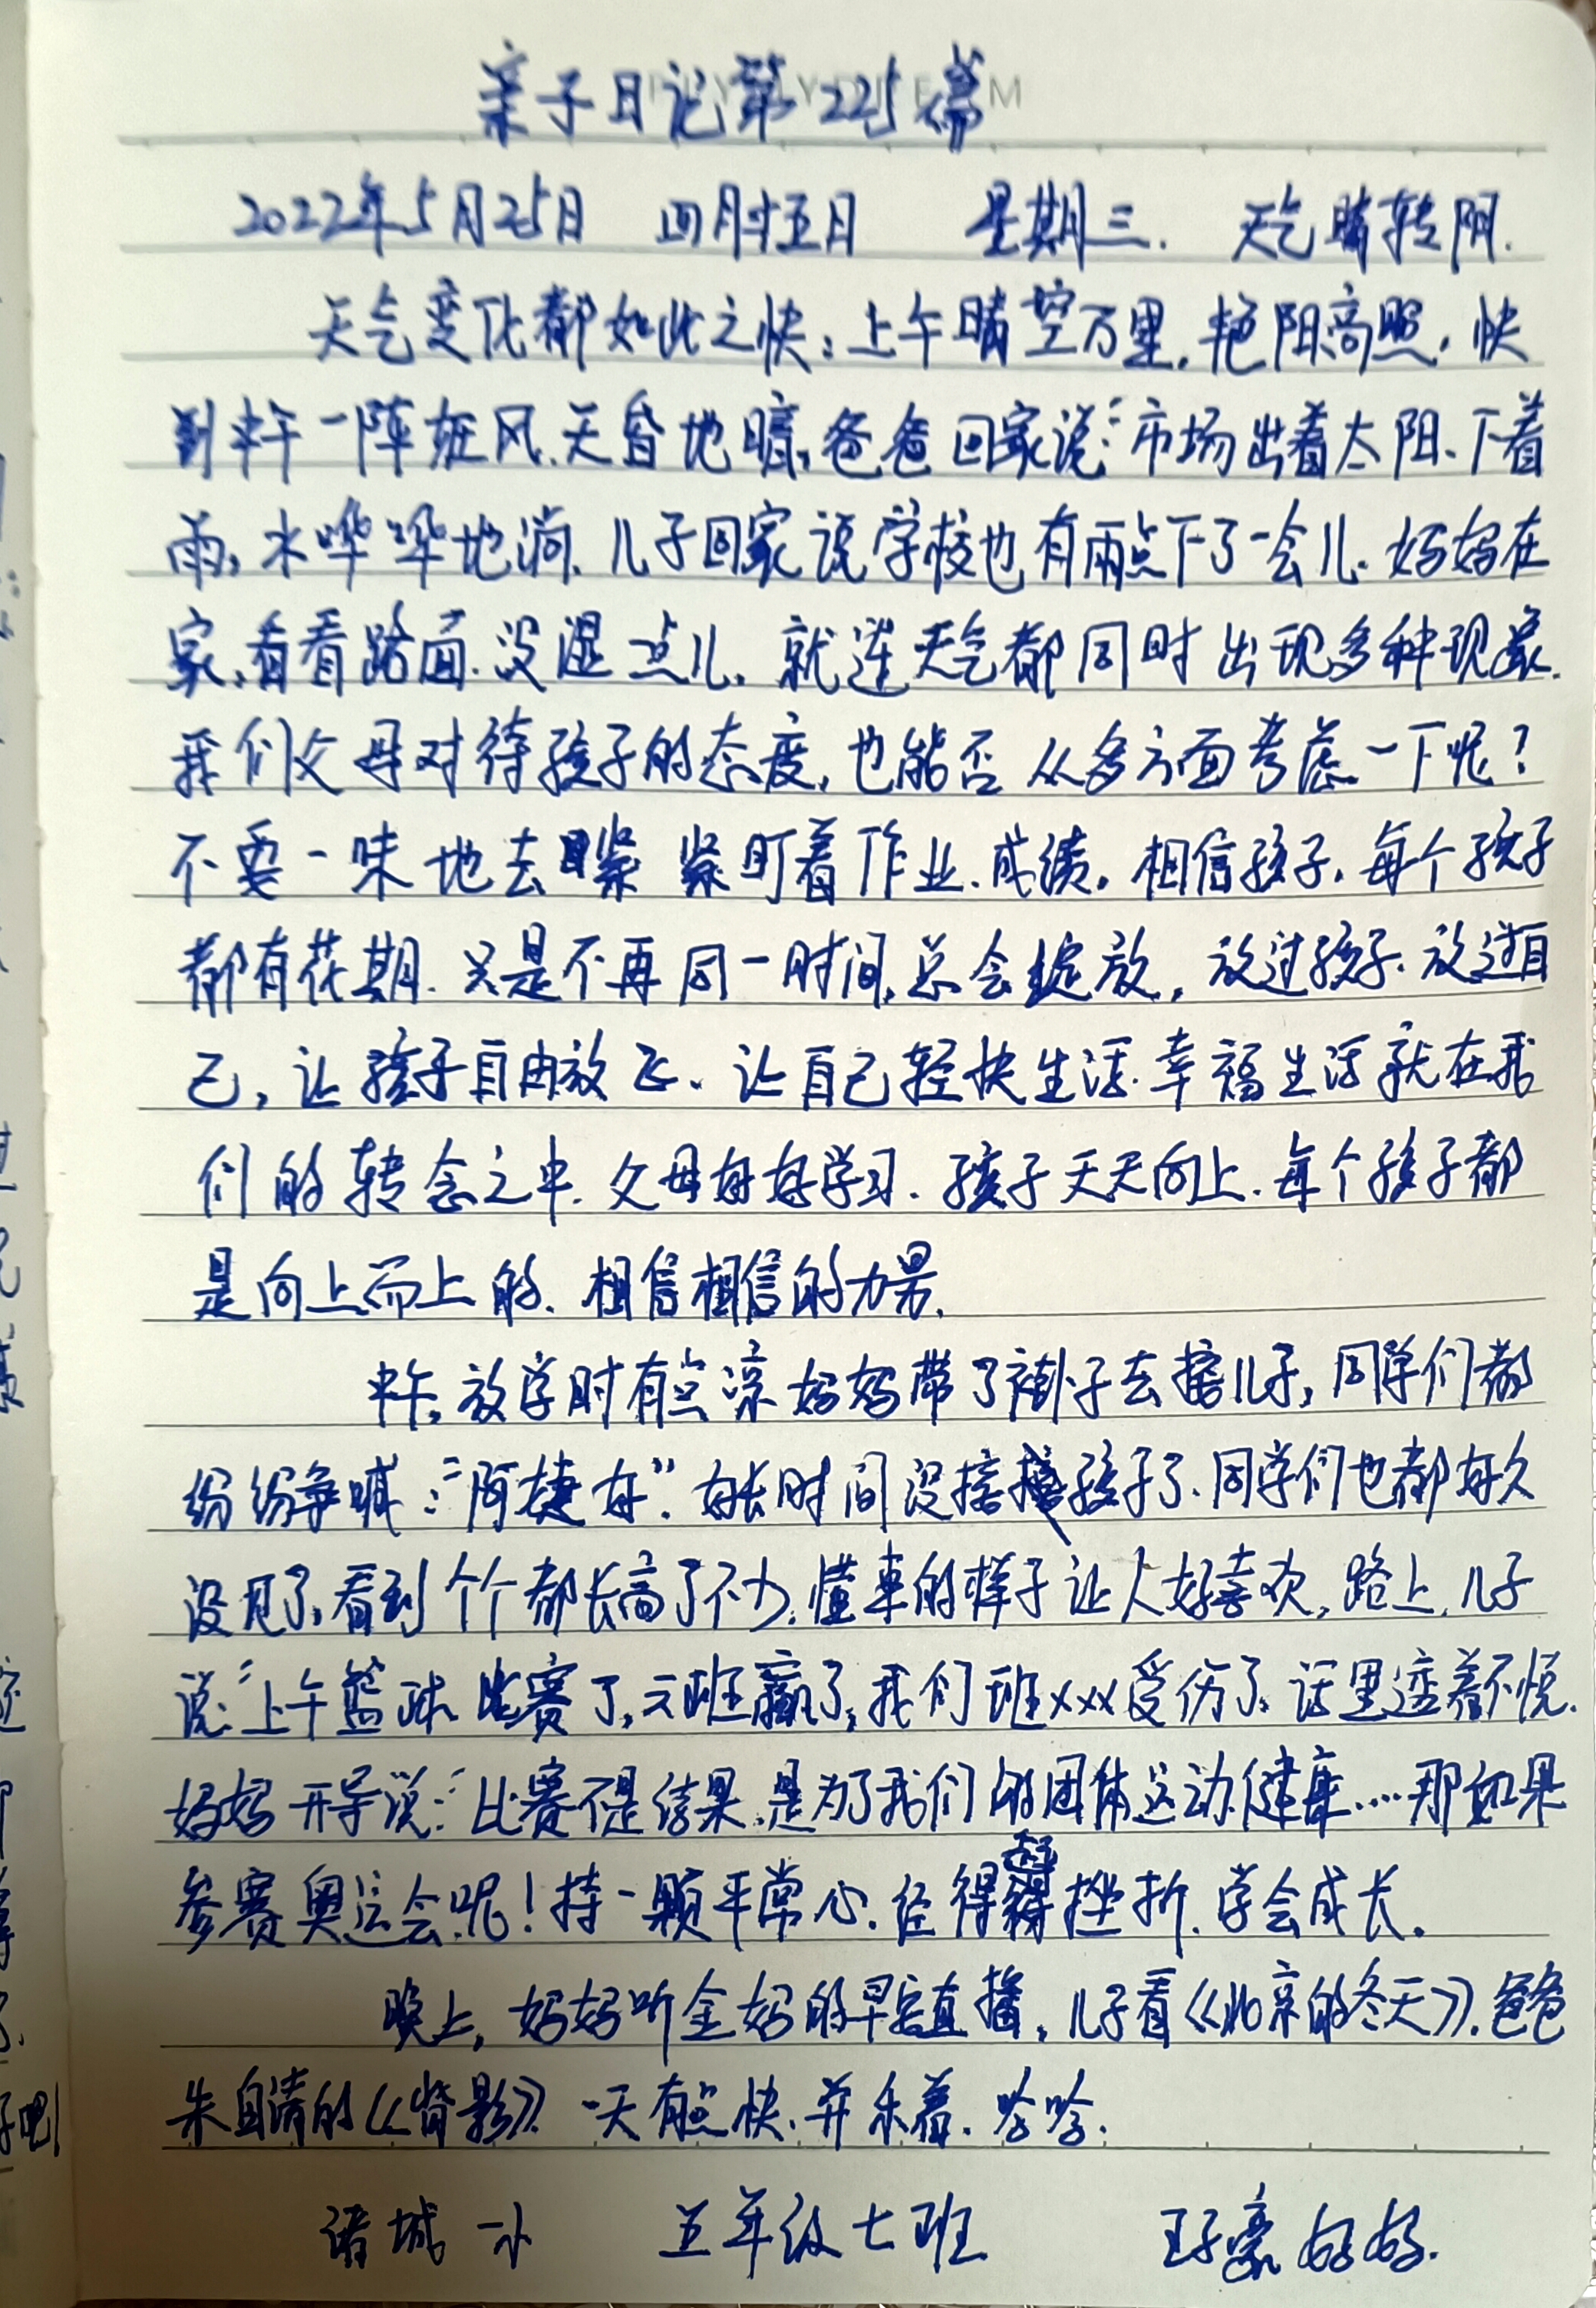 亲子日记第225篇
2022年5月25日 四月廿五日 星期三. 天气晴转阴.
天气变化都如此之快:上午晴空万里,艳阳高照,快
到中午一阵狂风,天昏地暗,爸爸回家说:“市场出着太阳、下着
雨,水哗哗地淌.儿子回家说学校也有雨点下了一会儿.妈妈在
家,看看路面.没湿一点儿.就连天气都同时出现多种现象.
我们父母对待孩子的态度,也能否从多方面考虑一下呢?
不要一味地去紧紧盯着作业、成绩.相信孩子.每个孩子
都有花期.只是不再同一时间,总会绽放,放过孩子.放过自
己,让孩子自由放飞、让自己轻快生活.幸福生活就在我
们的转念之中.父母好好学习.孩子天天向上.每个孩子都
是向上而上的.相信相信的力量.
中午,放学时有点凉妈妈带了褂子去接儿子,同学们都
纷纷争喊:“阿姨好”.好长时间没接孩子了.同学们也都好久
没见了,看到个个都长高了不少.懂事的样子让人好喜欢,路上,儿子
说:“上午篮球比赛了,六班赢了,我们班xxx受伤了.话里透着不悦.
妈妈开导说:“比赛不是结果.是为了我们的团体运动.健康....那如果
参赛奥运会呢!持一颗平常心.经得起挫折.学会成长.
晚上,妈妈听金妈的早安直播,儿子看《北京的冬天》.爸爸
朱自清的《背影》.一天有点快.并乐着.哈哈.
诸城一小 五年级七班 王子豪妈妈.